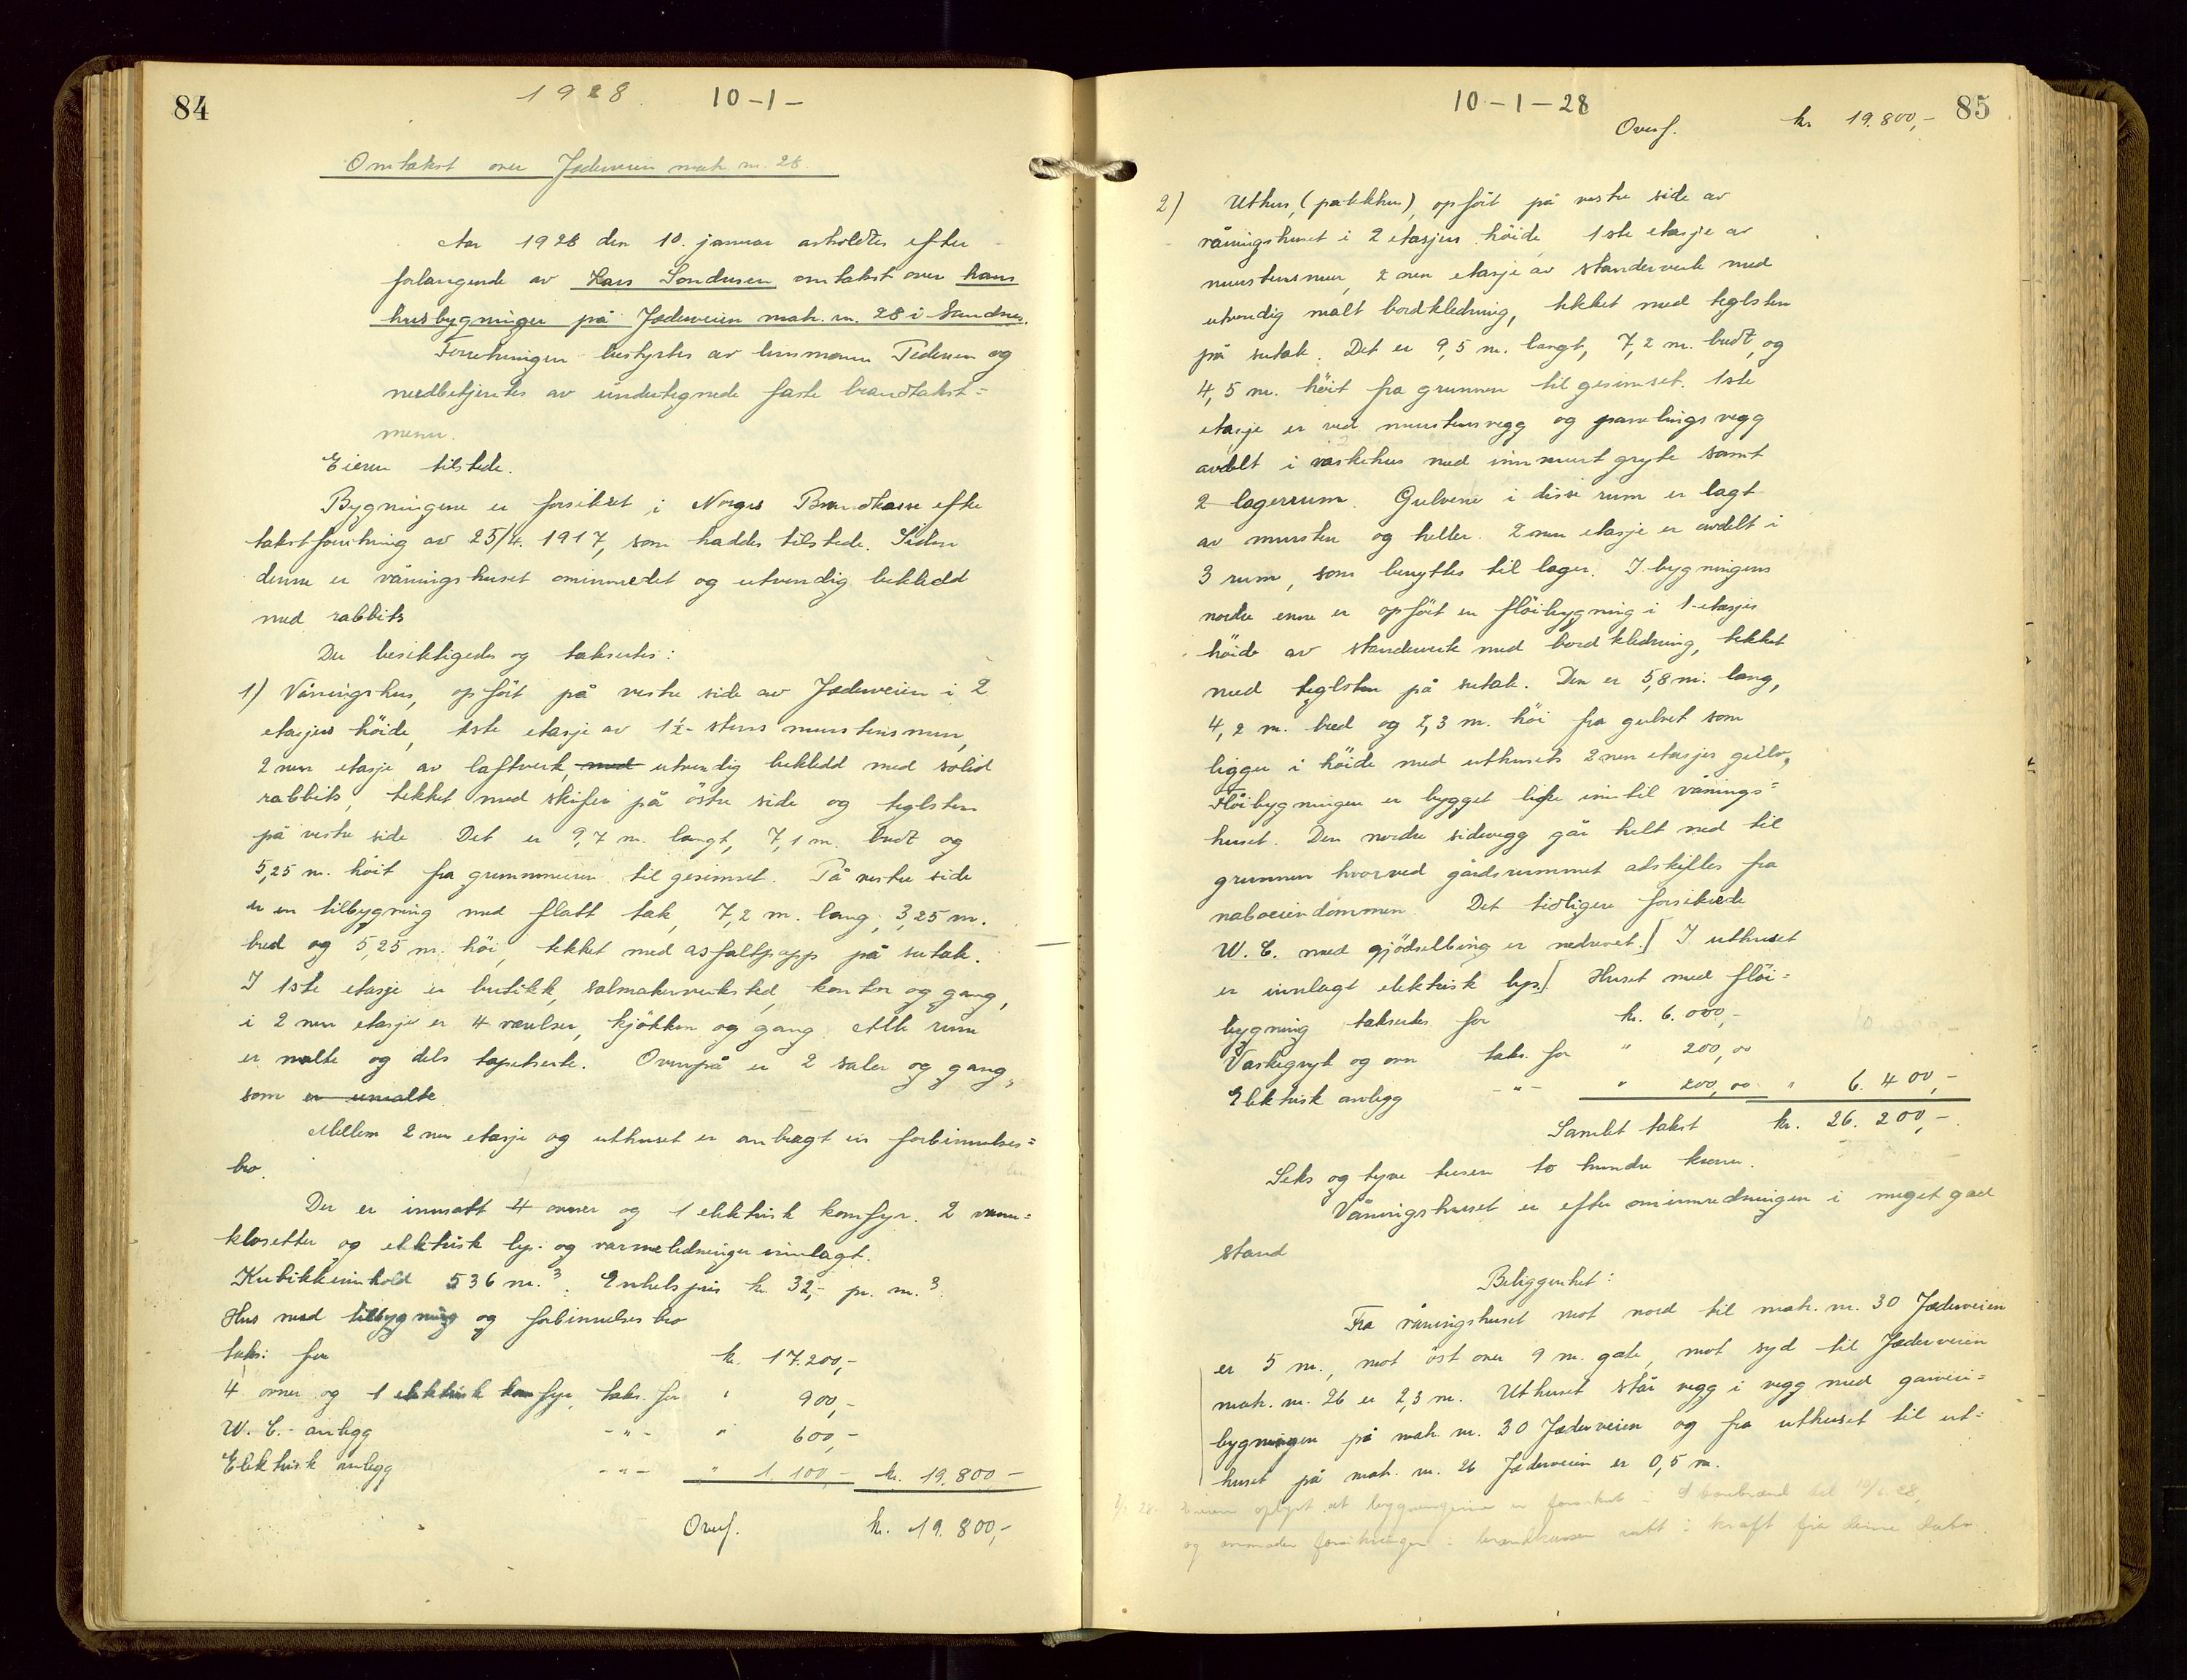 84
1928. 10-1-
Omtakst over Jæderveien matr. nr. 28.
Aar 1928 den 10. januar avholdtes efter
forlangende av Lars Sondresen omtakst over hans
husbygninger på Jæderveien matr. nr. 28 i Sandnes.
Forretningen bestyrtes av lensmann Pedersen og
medbetjentes av undertegnede faste brandtakst=
menn.
Eieren tilstede.
Bygningene er forsikret i Norges Brandkasse efter
takstforretning av 25/4. 1917, som haddes tilstede. Siden
denne er våningshuset ominnredet og utvendig bekledd
med rabbits
Der besiktigedes og taksertes:
1) Våningshus, opført på vestre side av Jæderveien i 2
etasjers höide, 1ste etasje av 1½-stens murstensmur,
2nen etasje av laftverk, med utvendig bekledd med solid
rabbits, tekket med skifer på östre side og teglsten
på vestre side. Det er 9,7 m. langt, 7,1 m. bredt og
5,25 m. höit fra grunnmuren til gesimset. På vestre side
er en tilbygning med flatt tak, 7,2 m. lang, 3,25 m.
bred og 5,25 m. höi, tekket med asfaltpapp på sutak.
I 1ste etasje er butikk, salmakerverksted, kontor og gang,
i 2nen etasje er 4 værelser, kjökken og gang. Alle rum
er malte og dels tapetserte. Ovenpå er 2 saler og gang,
som er umalte
Mellem 2nen etasje og uthuset er anbragt en forbinnelses=
bro.
Der er innsatt 4 ovner og 1 elektrisk komfyr. 2 vann=
klosetter og elektrisk lys- og varmeledninger innlagt.
Kubikkinnhold 536 m.³. Enhetspris kr. 32,- pr. m.³.
Hus med tilbygning og forbinnelses bro
taks: for kr. 17.200,-
4 ovner og 1 elektrisk komfyr, taks. for " 900,-
W. C.- anlegg -"- " 600,-
Elektrisk anlegg -"- " 1.100,- kr. 19.800,-
Overf. kr. 19.800,-
10-1-28
85
Overf. kr 19.800,-
2) Uthus, (pakkhus), opført på vestre side av
våningshuset i 2 etasjers höide, 1ste etasje av
murstensmur, 2nen etasje av standerverk med
utvendig malt bordkledning, tekket med teglsten
på sutak. Det er 9,5 m. langt, 7,2 m. bredt, og
4,5 m. höit fra grunnen til gesimset. 1ste
etasje er ved murstensvegg og panelingsvegg
avdelt i vaskehus med innmurt gryte samt
2 lagerrum. Gulvene i disse rum er lagt
av mursten og heller. 2nen etasje er avdelt i
3 rum, som benyttes til lager. I bygningens
nordre enne er opfört en flöibygning i 1-etasjes
höide av standerverk med bordkledning, tekket
med teglsten på sutak. Den er 5,8 m. lang,
4,2 m. bred og 2,3 m. höi fra gulvet som
ligger i höide med uthusets 2nen etasjes gulv.
Flöibygningen er bygget like inntil vånings=
huset. Den nordre sidevegg går helt ned til
grunnen hvorved gårdsrummet adskilles fra
naboeiendommen. Det tidligere forsikrede
W. C. med gjödselbing er nedrevet.] I uthuset
er innlagt elektrisk lys.] Huset med flöi=
bygning taksertes for kr. 6.000,-
Vaskegryt og ovn taks. for " 200,00
Elektrisk anlegg -"- " 200,00 " 6.400,-
Samlet takst kr. 26.200,-
Seks og tyve tusen to hundre kroner.
Våningshuset er efter ominnredningen i meget god
stand
Beliggenhet:
Fra våningshuset mot nord til matr. nr. 30 Jæderveien
er 5 m., mot öst over 9 m. gate, mot syd til Jæderveien
matr. nr. 26 er 2,3 m. Uthuset står vegg i vegg med garveri=
bygningen på matr. nr. 30 Jæderveien og fra uthuset til ut=
huset på matr. nr. 26 Jæderveien er 0,5 m.
Eieren oplyst at bygningene er forsikret i Storebrand til 10/1.28,
og anmoder forsikringen i brandkassen satt i kraft fra denne dato.